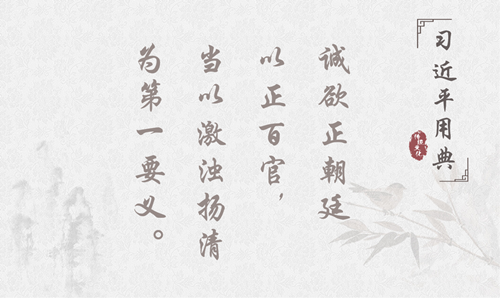 习近平用典
诚欲正朝廷
以正百官，
当以激浊扬清
为第一要义。